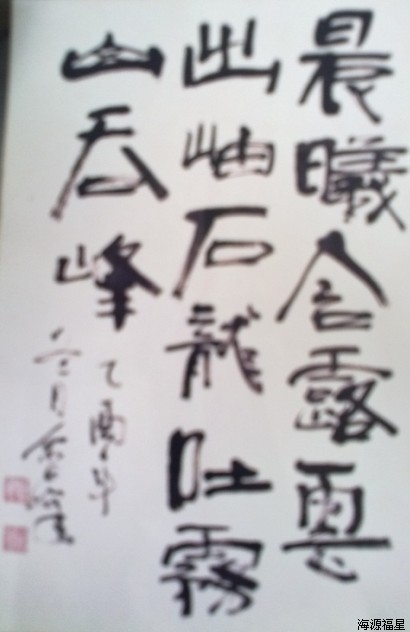 晨曦含露雲
出岫石龍吐霧
山吞峰
乙酉年
月
海源福星